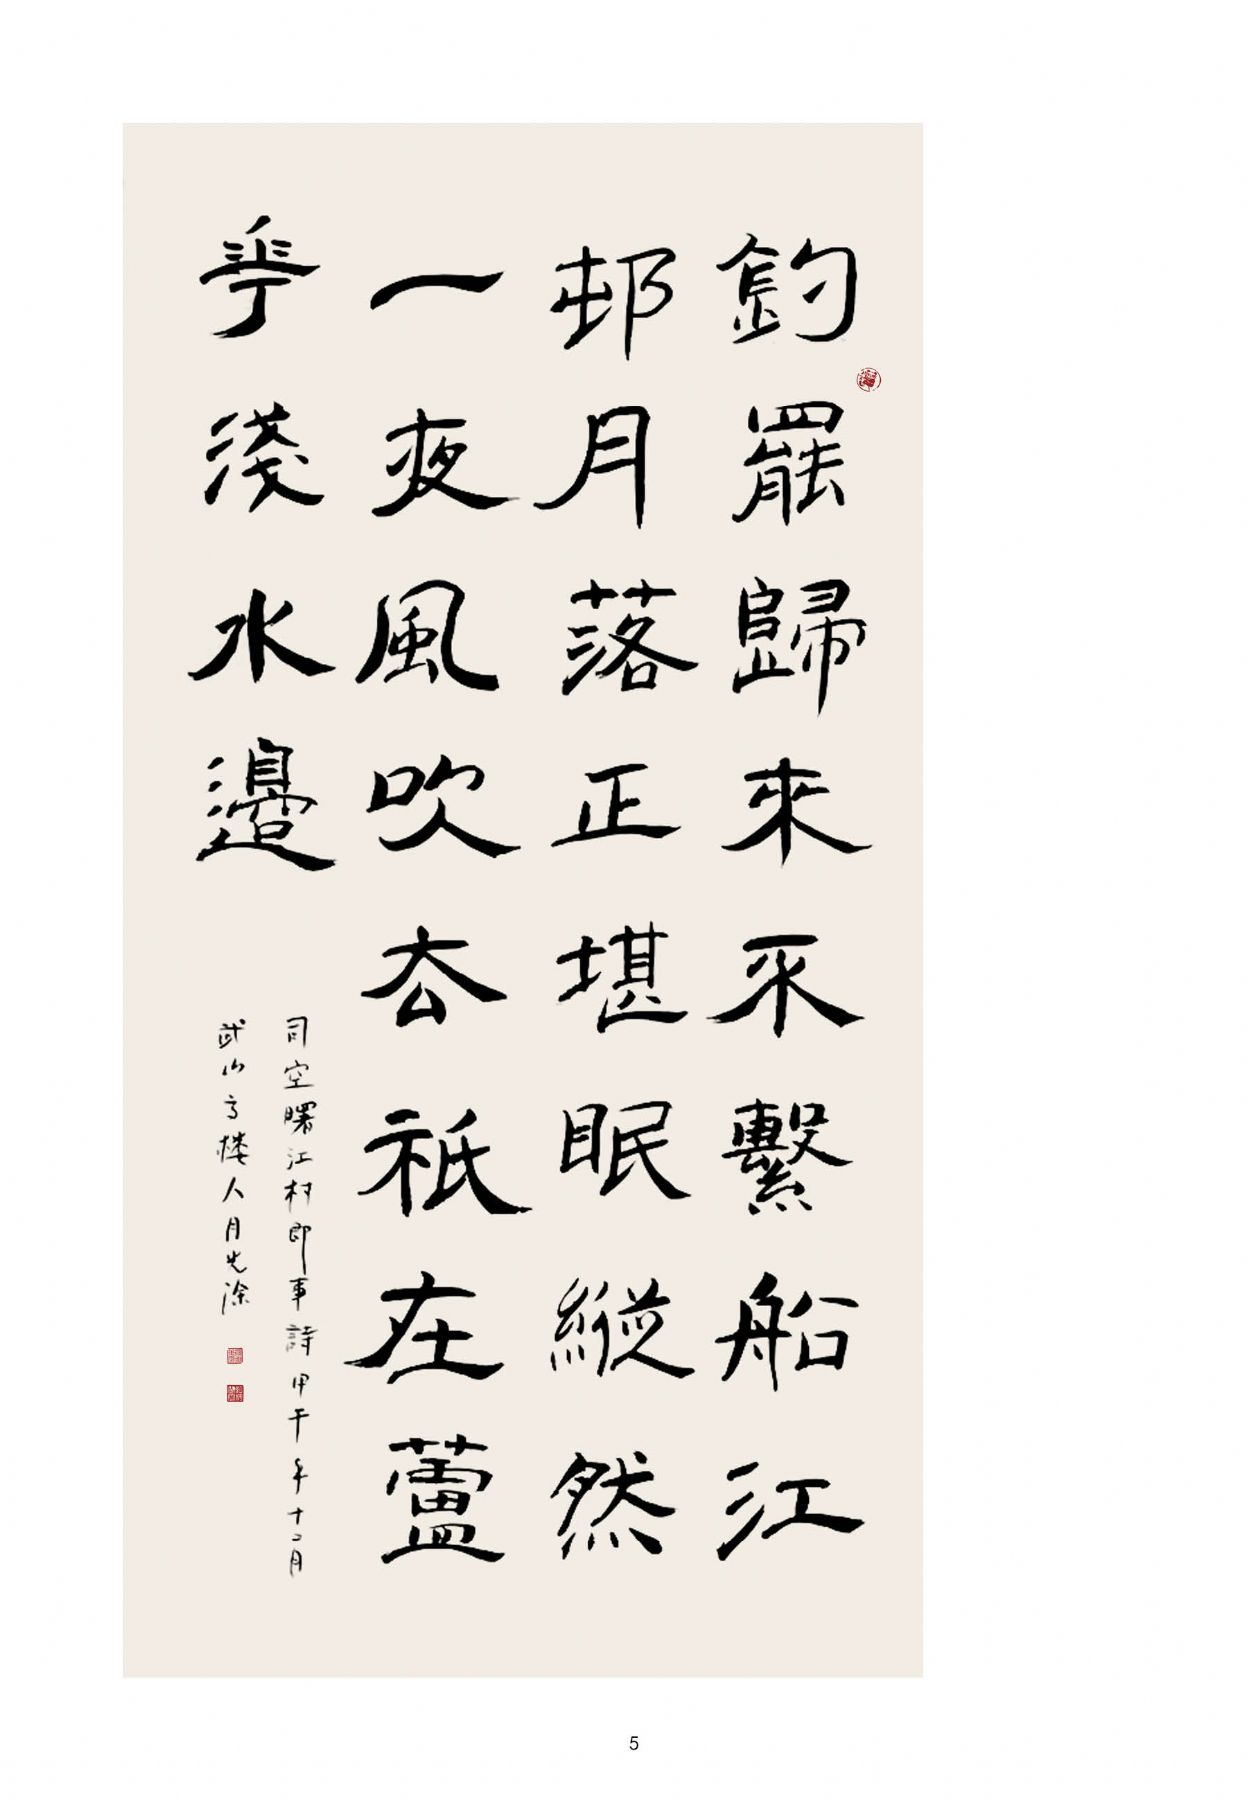 釣罷歸來不繫船江
邨月落正堪眠縱然
一夜風吹去祇在蘆
花淺水邊
司空曙江村即事詩甲午年十二月
武山高楼人月先涂
5